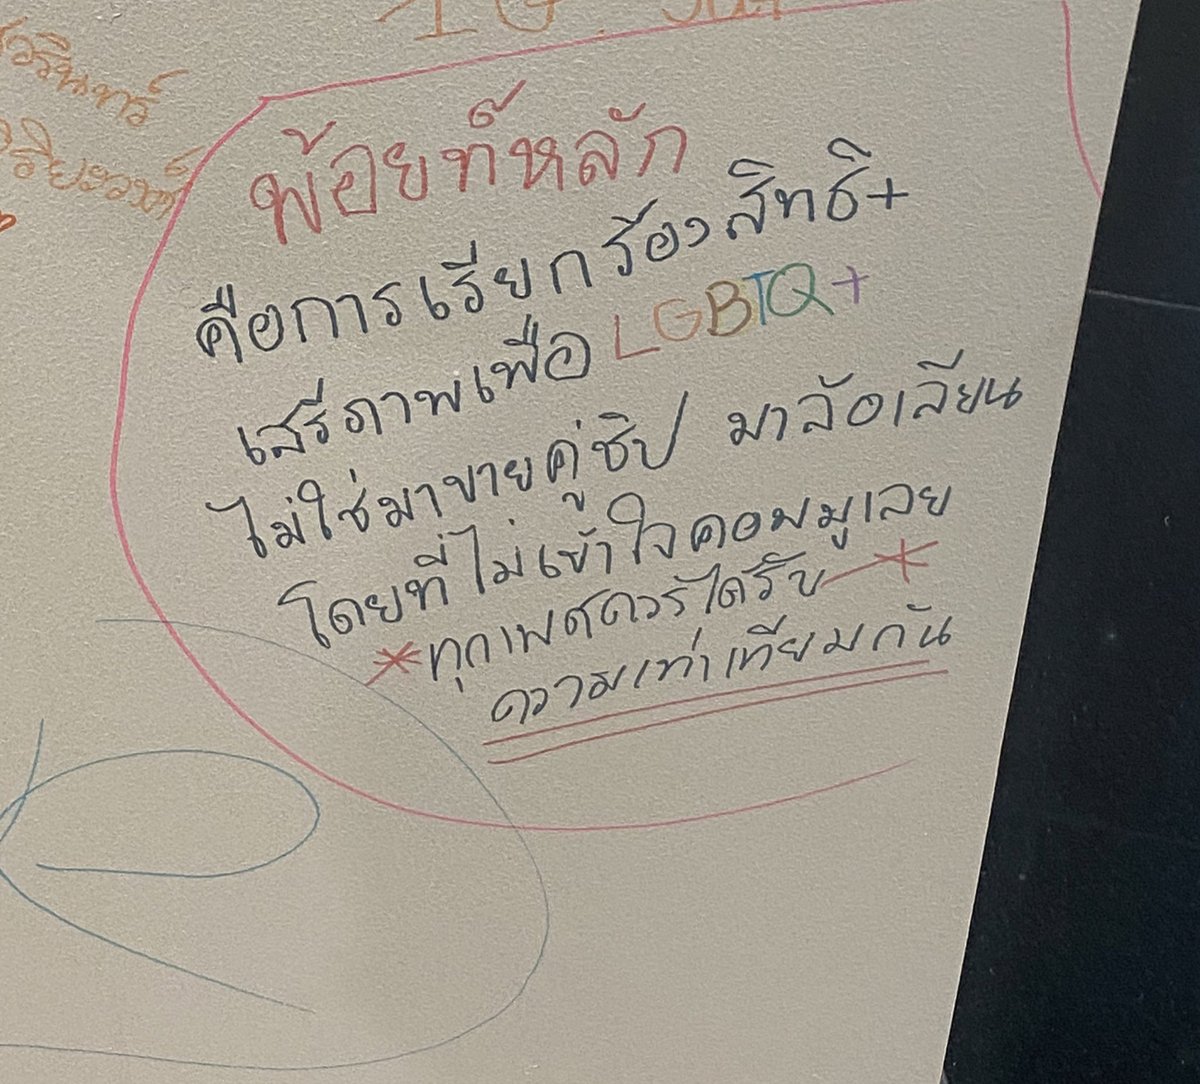 พ้อยท์หลัก
คือการเรียกร้องสิทธิ+
เสรีภาพเพื่อ LGBTQ+
ไม่ใช่มาขายคู่ชิป มาล้อเลียน
โดยที่ไม่เข้าใจคอมมูเลย
*ทุกเพศควรได้รับ*
ความเท่าเทียมกัน